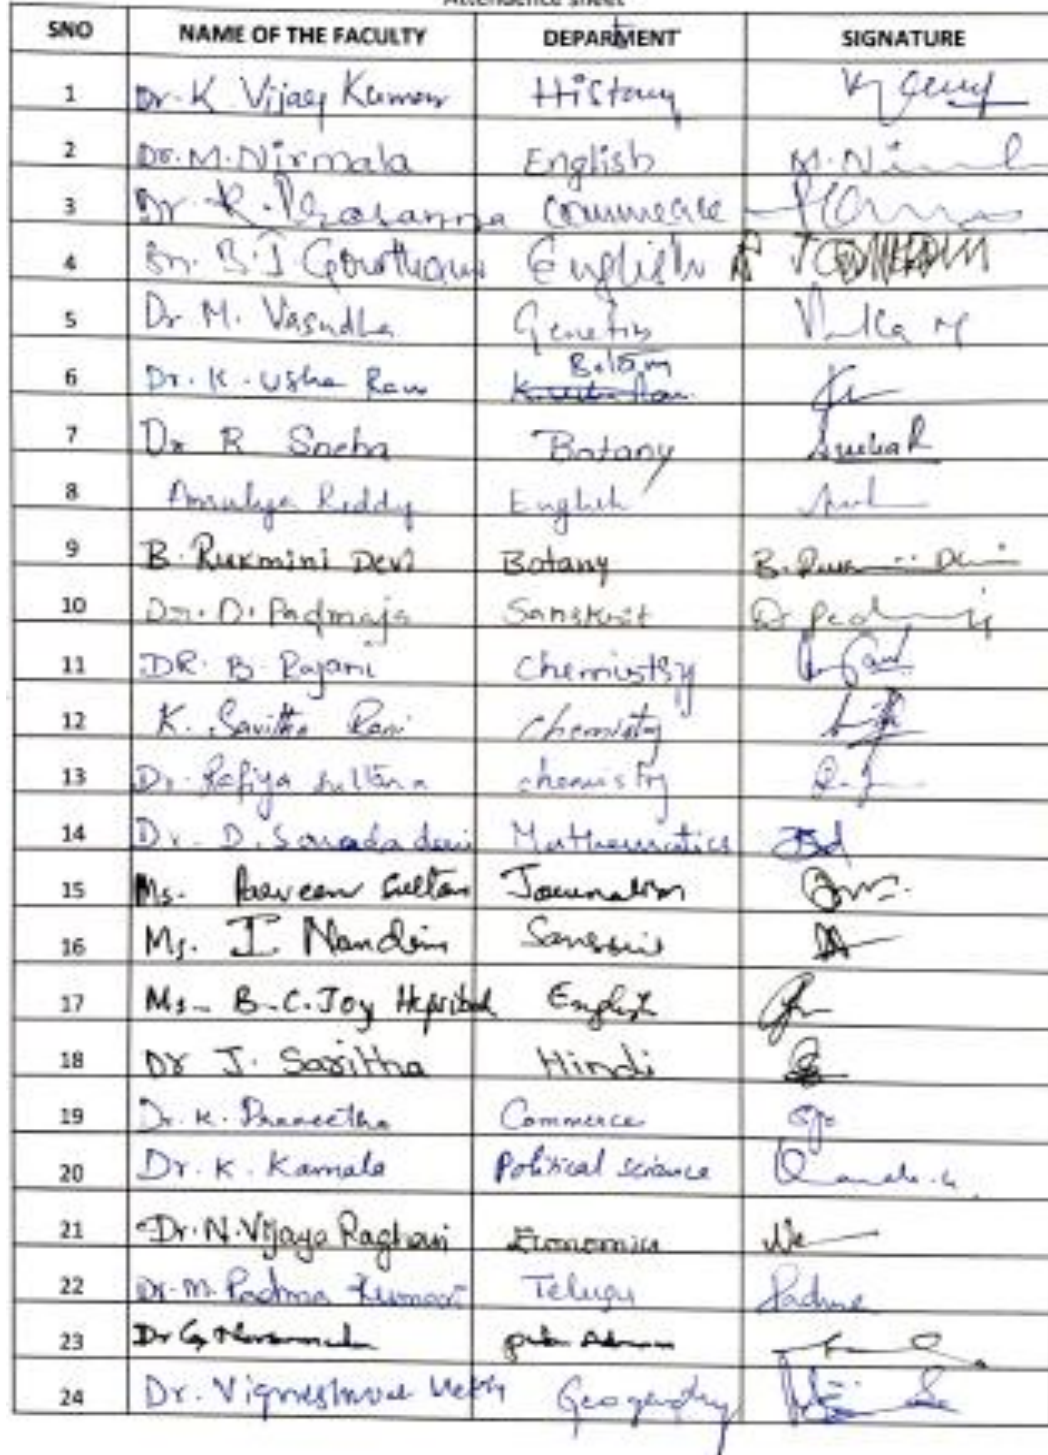 Attendence Sheet
SNO NAME OF THE FACULTY DEPARTMENT SIGNATURE
1 Dr. K Vijay Kumar History
2 Dr. M. Nirmala English M. Ni
3 Dr. R. Prasanna Commerce
4 Dr. B. J Gowthami English
5 Dr M. Vasudha Genetics
6 Dr. K. Usha Rani Botany
7 Dr R Sneha Botany Sneha R
8 Amulya Reddy English
9 B. Rukmini Devi Botany
10 Dr. D. Padmaja Sanskrit
11 DR. B. Rajani Chemistry
12 K. Savitha Rani Chemistry
13 Dr. Rafiya Sultana chemistry
14 Dr. D. Sarada devi Mathematics
15 Ms. Parveen Sultan Journalism
16 Ms. I Nandini Sanskrit
17 Ms. B.C. Joy Hepsibah English
18 Dr J. Saritha Hindi
19 Dr. K. Praneetha Commerce
20 Dr. K. Kamala Political science
21 Dr. N. Vijaya Raghavi Economics
22 Dr. M. Padma Kumari Telugu Padma
23 Dr G
24 Dr. Vigneshwar Geography